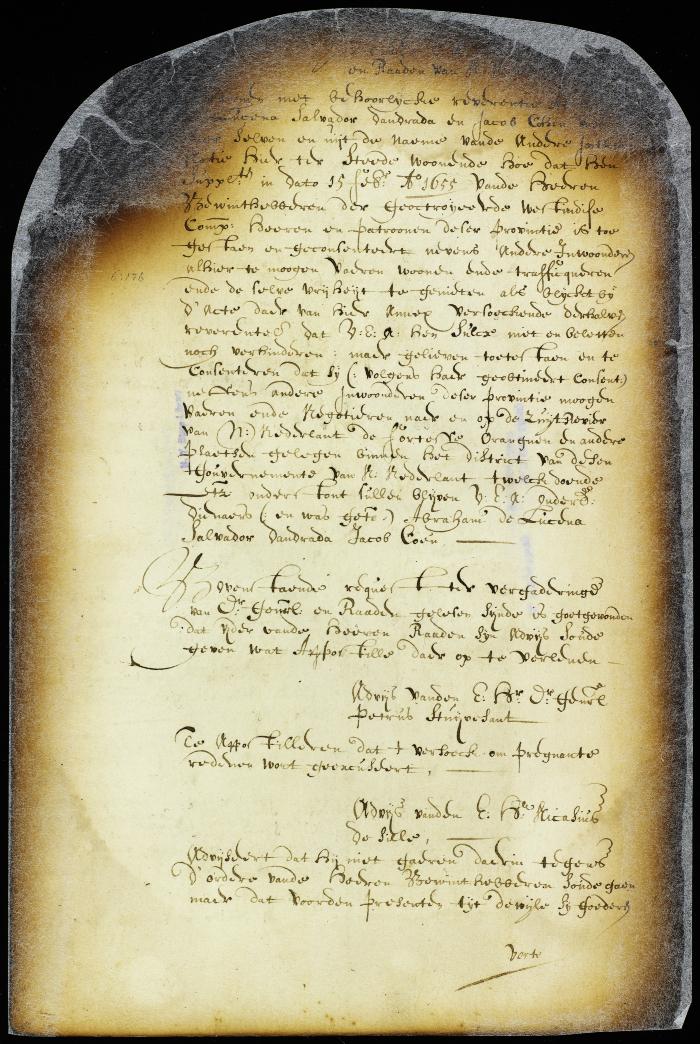 en Raaden van
met behoorlycke reverentie
Lucena Salvador Dandrada en Jacob Coen
selven en uijt de naeme vande Andere
natie hier ter steede woonende hoe dat hen
suppl.ten in dato 15 feb: Ao 1655 vande Heeren
Bewinthebberen der Geoctroijeerde Westindise
Comp: heeren en patroonen deser provintie is toe
gestaen en geconsenteert nevens Andere Inwoonders
alhier te moogen vaeren woonen ende traffiqueren
6:176
ende de selve vrijheijt te genieten als blyckt by
d'Acte daer van hier Annex versoeckende derhalven
reverentel: dat U: E: A: hen sulcx niet en beletten
noch verhinderen: maer gelieven toetestaen en te
Consenteren dat sij (: volgens haer geobtineert Consent:)
neffens andere Inwoonderen deser provintie moogen
vaeren ende Negotieren naer en op de Zuijt Revier
van N:) Nederlant de fortesse Orangien en andere
plaetsen gelegen binnen het district van desen
Gouvernemente van N: Nederlant t welck doende
etz onders tont sullen blijven U: E: A: onderd:
Dienaers (: en was get:) Abraham de Lucena
Salvador Dandrada Jacob Coen
Bovenstaende request ter vergaderinge
van Dr. Genrl en Raaden gelesen synde is goetgevonden
dat yder vande heeren Raaden syn Advys soude
geven wat Appostille daer op te verlenen
Advys vanden E: Hr Dr Genrl
Petrus Stuyvesant
Te Appostilleren dat t versoeck om pregnante
redenen wort geexcuseert,
Advys vanden E: Hr Nicasius
de Sille,
Advyseert dat hij niet gaeren daerin tegens
D'ordere vande heeren Bewinthebberen soude gaen
maer dat voorden presenten tyt dewyle sy goeders
verte